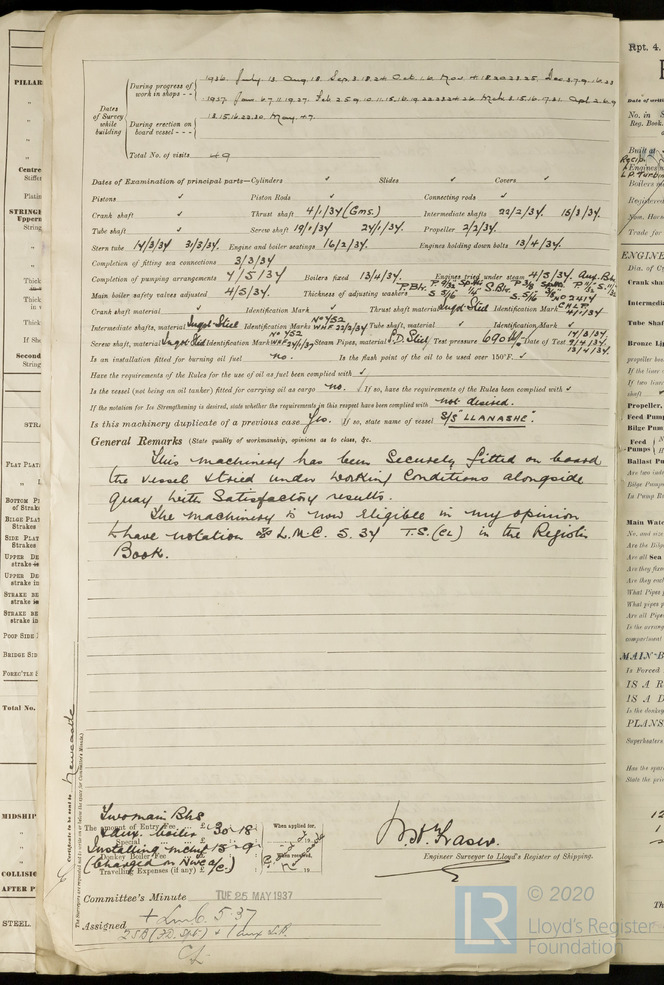 Rpt. 4.
PILLAR
Dates of Survey while building
During progress of work in shops - -
1936. July. 13. Aug. 18. Sep. 3. 18. 24 Oct. 1.6. Nov. 4. 18. 20. 23. 25. Dec. 3. 7. 9. 16. 23
1937. Jan. 6. 7. 11. 19. 27. Feb. 2. 5. 9. 10. 11. 15. 16. 19. 22. 23. 24. 26. Mch. 3. 15. 16. 17. 31. Apl. 2. 6. 9
During erection on board vessel - - -
13. 15. 16. 22. 30. May. 4. 7.
Total No. of visits 49
Dates of Examination of principal parts—Cylinders ✓ Slides ✓ Covers ✓
Pistons ✓ Piston Rods ✓ Connecting rods ✓
Crank shaft ✓ Thrust shaft 4/1/37 (Gms.) Intermediate shafts 22/2/37. 15/3/37.
Tube shaft ✓ Screw shaft 19/1/37 27/1/37. Propeller 2/2/37.
Stern tube 14/3/37 31/3/37. Engine and boiler seatings 16/2/37. Engines holding down bolts 13/4/37.
Completion of fitting sea connections 3/3/37
Completion of pumping arrangements 7/5/37 Boilers fixed 13/4/37. Engines tried under steam 4/5/37.
Main boiler safety valves adjusted 4/5/37. Thickness of adjusting washers
Crank shaft material ✓ Identification Mark ✓ Thrust shaft material Ingot Steel Identification Mark No 2414 4/1/37
Intermediate shafts, material Ingot Steel Identification Marks No 452 WHF 22/2/37 Tube shaft, material ✓ Identification Mark ✓
Screw shaft, material Ingot Steel Identification Mark No 452 WHF 27/1/37 Steam Pipes, material S.D. Steel Test pressure 690 lb/□" Date of Test 14/3/37. 9/4/37. 13/4/37.
Is an installation fitted for burning oil fuel no. Is the flash point of the oil to be used over 150°F. ✓
Have the requirements of the Rules for the use of oil as fuel been complied with ✓
Is the vessel (not being an oil tanker) fitted for carrying oil as cargo no. If so, have the requirements of the Rules been complied with ✓
If the notation for Ice Strengthening is desired, state whether the requirements in this respect have been complied with not desired.
Is this machinery duplicate of a previous case Yes. If so, state name of vessel S/S "LLANASHE".
General Remarks (State quality of workmanship, opinions as to class, &c.
This machinery has been securely fitted on board
the vessel & tried under working conditions alongside
quay with satisfactory results.
The machinery is now eligible in my opinion
to have notation of L.M.C. 5. 37 T.S. (CL) in the Register
Book.
Certificate to be sent to Newcastle
Two main Blrs
The amount of Entry Fee ... £
1 aux. boiler 30 - 18
Special ... £
Installing mchy 15 - 9
Donkey Boiler Fee ... £
(Charged on Nwc a/c.)
Travelling Expenses (if any) £
When applied for,
When received,
W.H. Fraser.
Engineer Surveyor to Lloyd's Register of Shipping.
Committee's Minute TUE 25 MAY 1937
Assigned + Lmc 5.37
2SB (FD. Spt) + 1 aux S.B.
CL
LR
© 2020
Lloyd's Register
Foundation